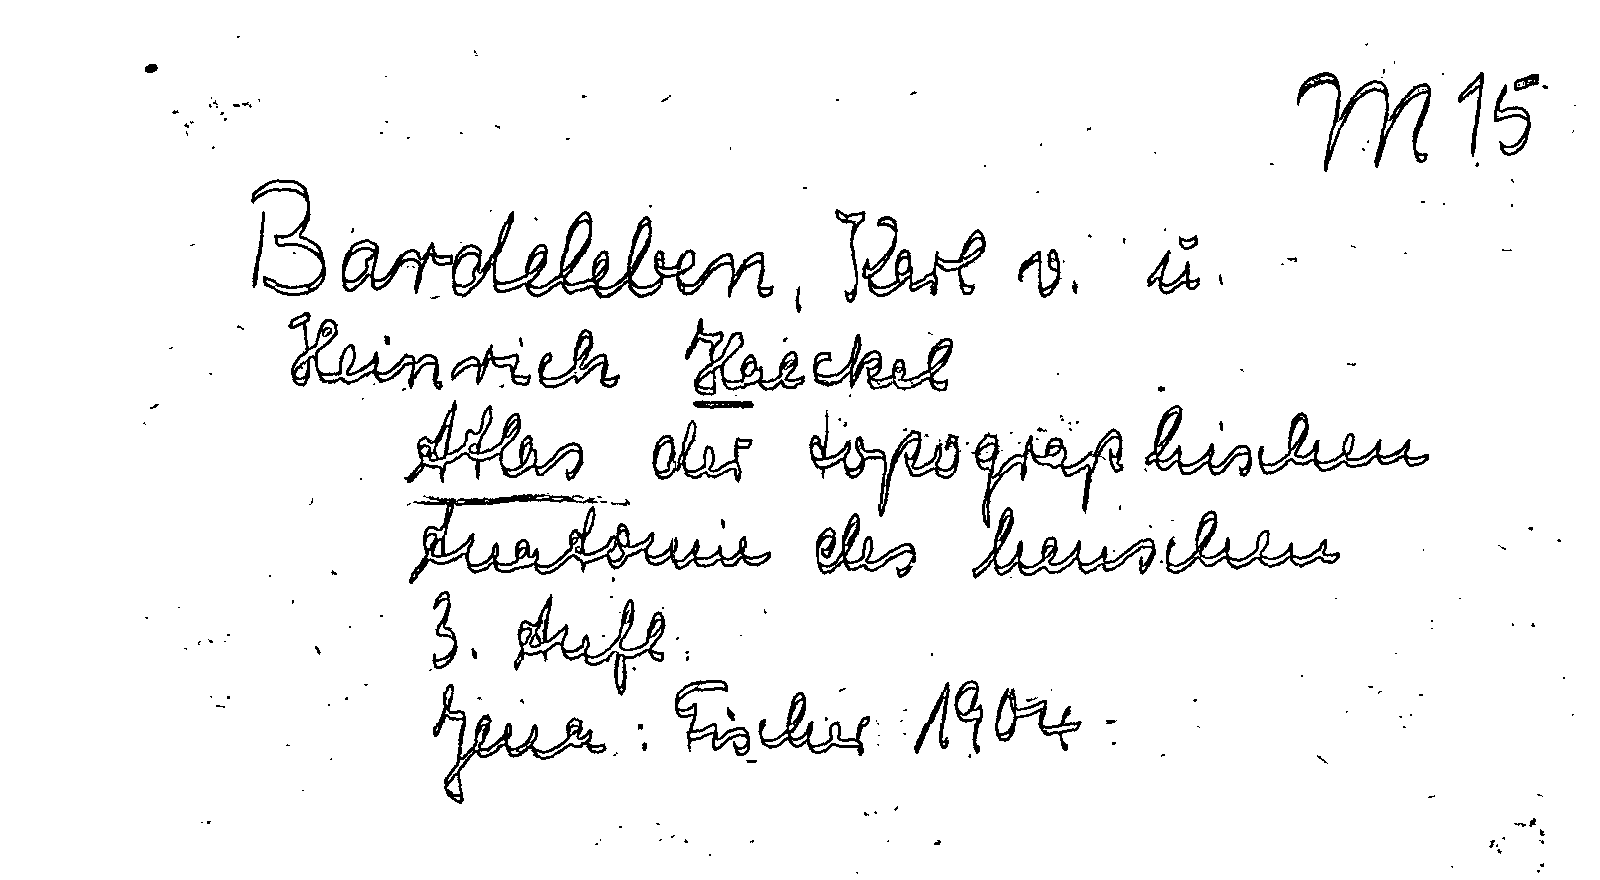 M 15
Bardeleben, Karl v. u.
Heinrich Haeckel
Atlas der topographischen
Anatomie des Menschen
3. Aufl.
Jena : Fischer 1904.